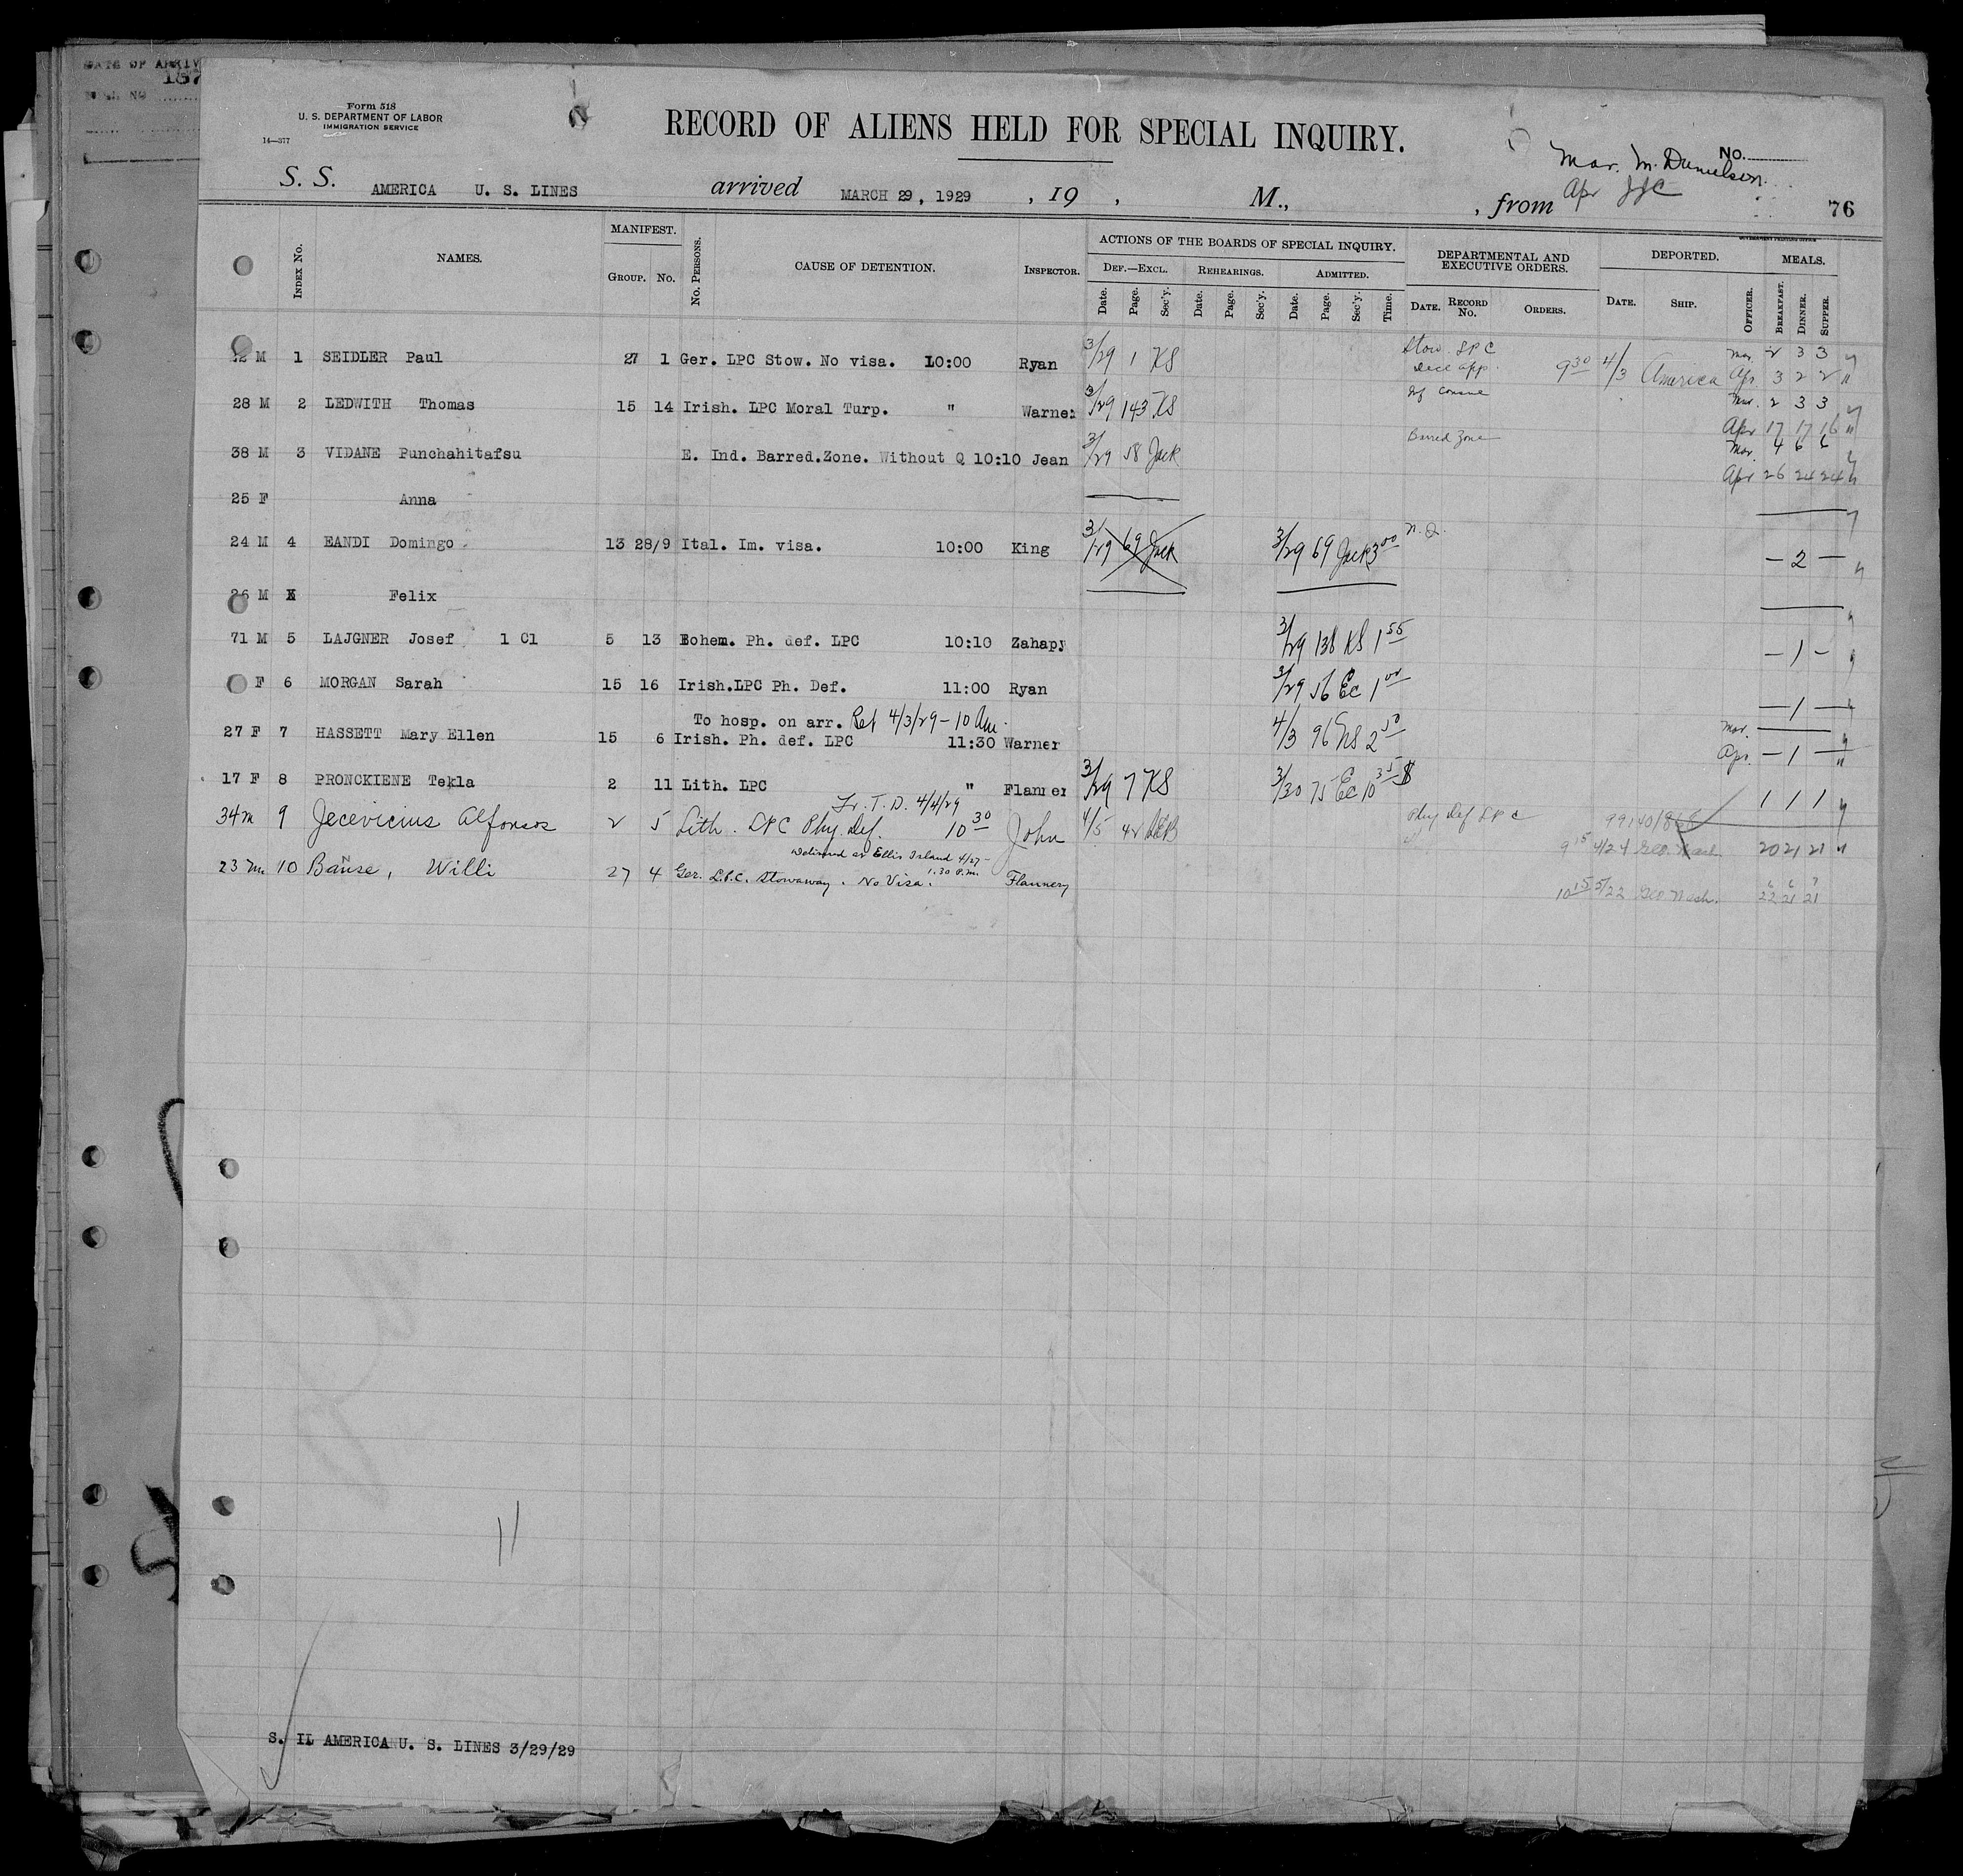 DATE OF ARRIV
187
Form 518
U. S. DEPARTMENT OF LABOR
IMMIGRATION SERVICE
14—377
RECORD OF ALIENS HELD FOR SPECIAL INQUIRY.
No.
Mar. M. Danielson
Apr JJC
S. S. AMERICA U. S. LINES arrived MARCH 29, 1929 , 19 , M., , from
76
GOVERNMENT PRINTING OFFICE
Index No. NAMES. MANIFEST. Group. No. No. Persons. CAUSE OF DETENTION. Inspector. ACTIONS OF THE BOARDS OF SPECIAL INQUIRY. DEPARTMENTAL AND EXECUTIVE ORDERS. DEPORTED. MEALS.
Def.—Excl. Rehearings. Admitted.
Date. Page. Sec'y. Date. Page. Sec'y. Date. Page. Sec'y. Time. Date. Record No. Orders. Date. Ship. Officer. Breakfast. Dinner. Supper.
Stow. LPC Mar. 2 3 3
2 M 1 SEIDLER Paul 27 1 Ger. LPC Stow. No visa. 10:00 Ryan 3/29 1 KS 9 30 4/3 America Apr 3 2 2 "
28 M 2 LEDWITH Thomas 15 14 Irish. LPC Moral Turp. " Warner 3/29 143 KS Mar. 2 3 3
Apr 17 17 16 "
38 M 3 VIDANE Punchahitafsu E. Ind. Barred.Zone. Without Q 10:10 Jean 3/29 58 Jack Barred Zone Mar. 4 6 6
Apr 26 24 24 "
25 F Anna
24 M 4 EANDI Domingo 13 28/9 Ital. Im. visa. 10:00 King 3/29 69 Jack 3/29 69 Jack 3 00 N.Q. — 2 —
26 M X Felix
71 M 5 LAJGNER Josef 1 Cl 5 13 Bohem. Ph. def. LPC 10:10 Zahapy 3/29 138 KS 1 55 — 1 —
F 6 MORGAN Sarah 15 16 Irish.LPC Ph. Def. 11:00 Ryan 3/29 56 Ec 1 00 — 1 —
To hosp. on arr. Ret 4/3/29 - 10 Am. Mar.
27 F 7 HASSETT Mary Ellen 15 6 Irish. Ph. def. LPC 11:30 Warner 4/3 96 NS 2 50 Apr. — 1 — "
17 F 8 PRONCKIENE Tekla 2 11 Lith. LPC " Flanner 3/29 7 KS 3/30 75 Ec 10 35 1 1 1
Fr. T. D. 4/4/29
34 m 9 Jecevicius Alfonsos 2 5 Lith. LPC Phy. Def. 10 30 John 4/5 42 Phy Def LPC 99140/868
9 15 4/24 Geo. Wash. 20 21 21 "
Delivered at Ellis Island 4/27 - 1.30 P.M.
23 m. 10 Banse, Willi 27 4 Ger. L.P.C. Stowaway. No Visa. Flannery
10 15 5/22 Geo Wash. 22 21 21
6 6 7
11
S. IL AMERICA U. S. LINES 3/29/29